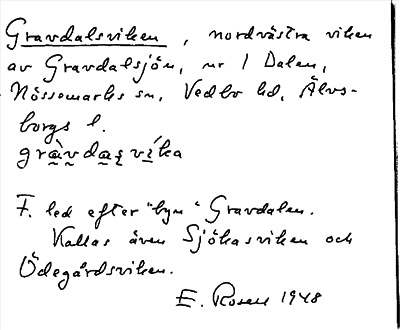 Gravdalsviken, nordvästra viken
av Gravdalsjön, nr 1 Dalen,
Nössemarks sn, Vedbo hd, Älvs-
borgs l.
grà̱v̱da̱ṣví̱ka
F. led efter "byn" Gravdalen.
Kallas även Sjökasviken och
Ödegårdsviken.
E. Rosell 1948